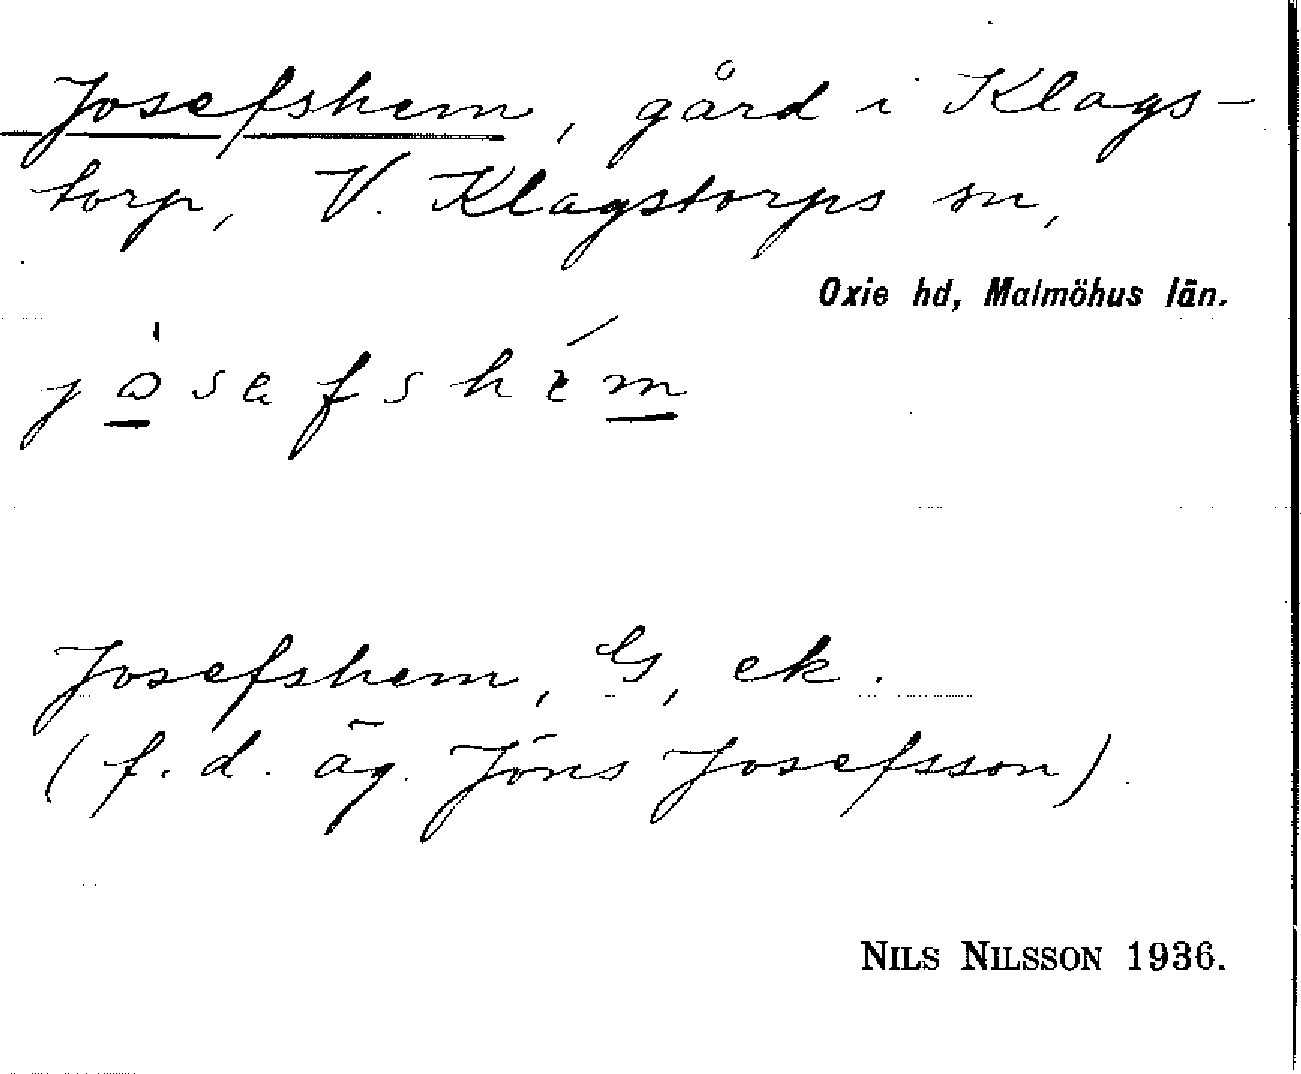 Josefshem, gård i Klags-
torp, V. Klagstorps sn,
Oxie hd, Malmöhus län.
jòsefshém
Josefshem, G, ek.
(f.d. äg. Jöns Josefsson).
NILS NILSSON 1936.